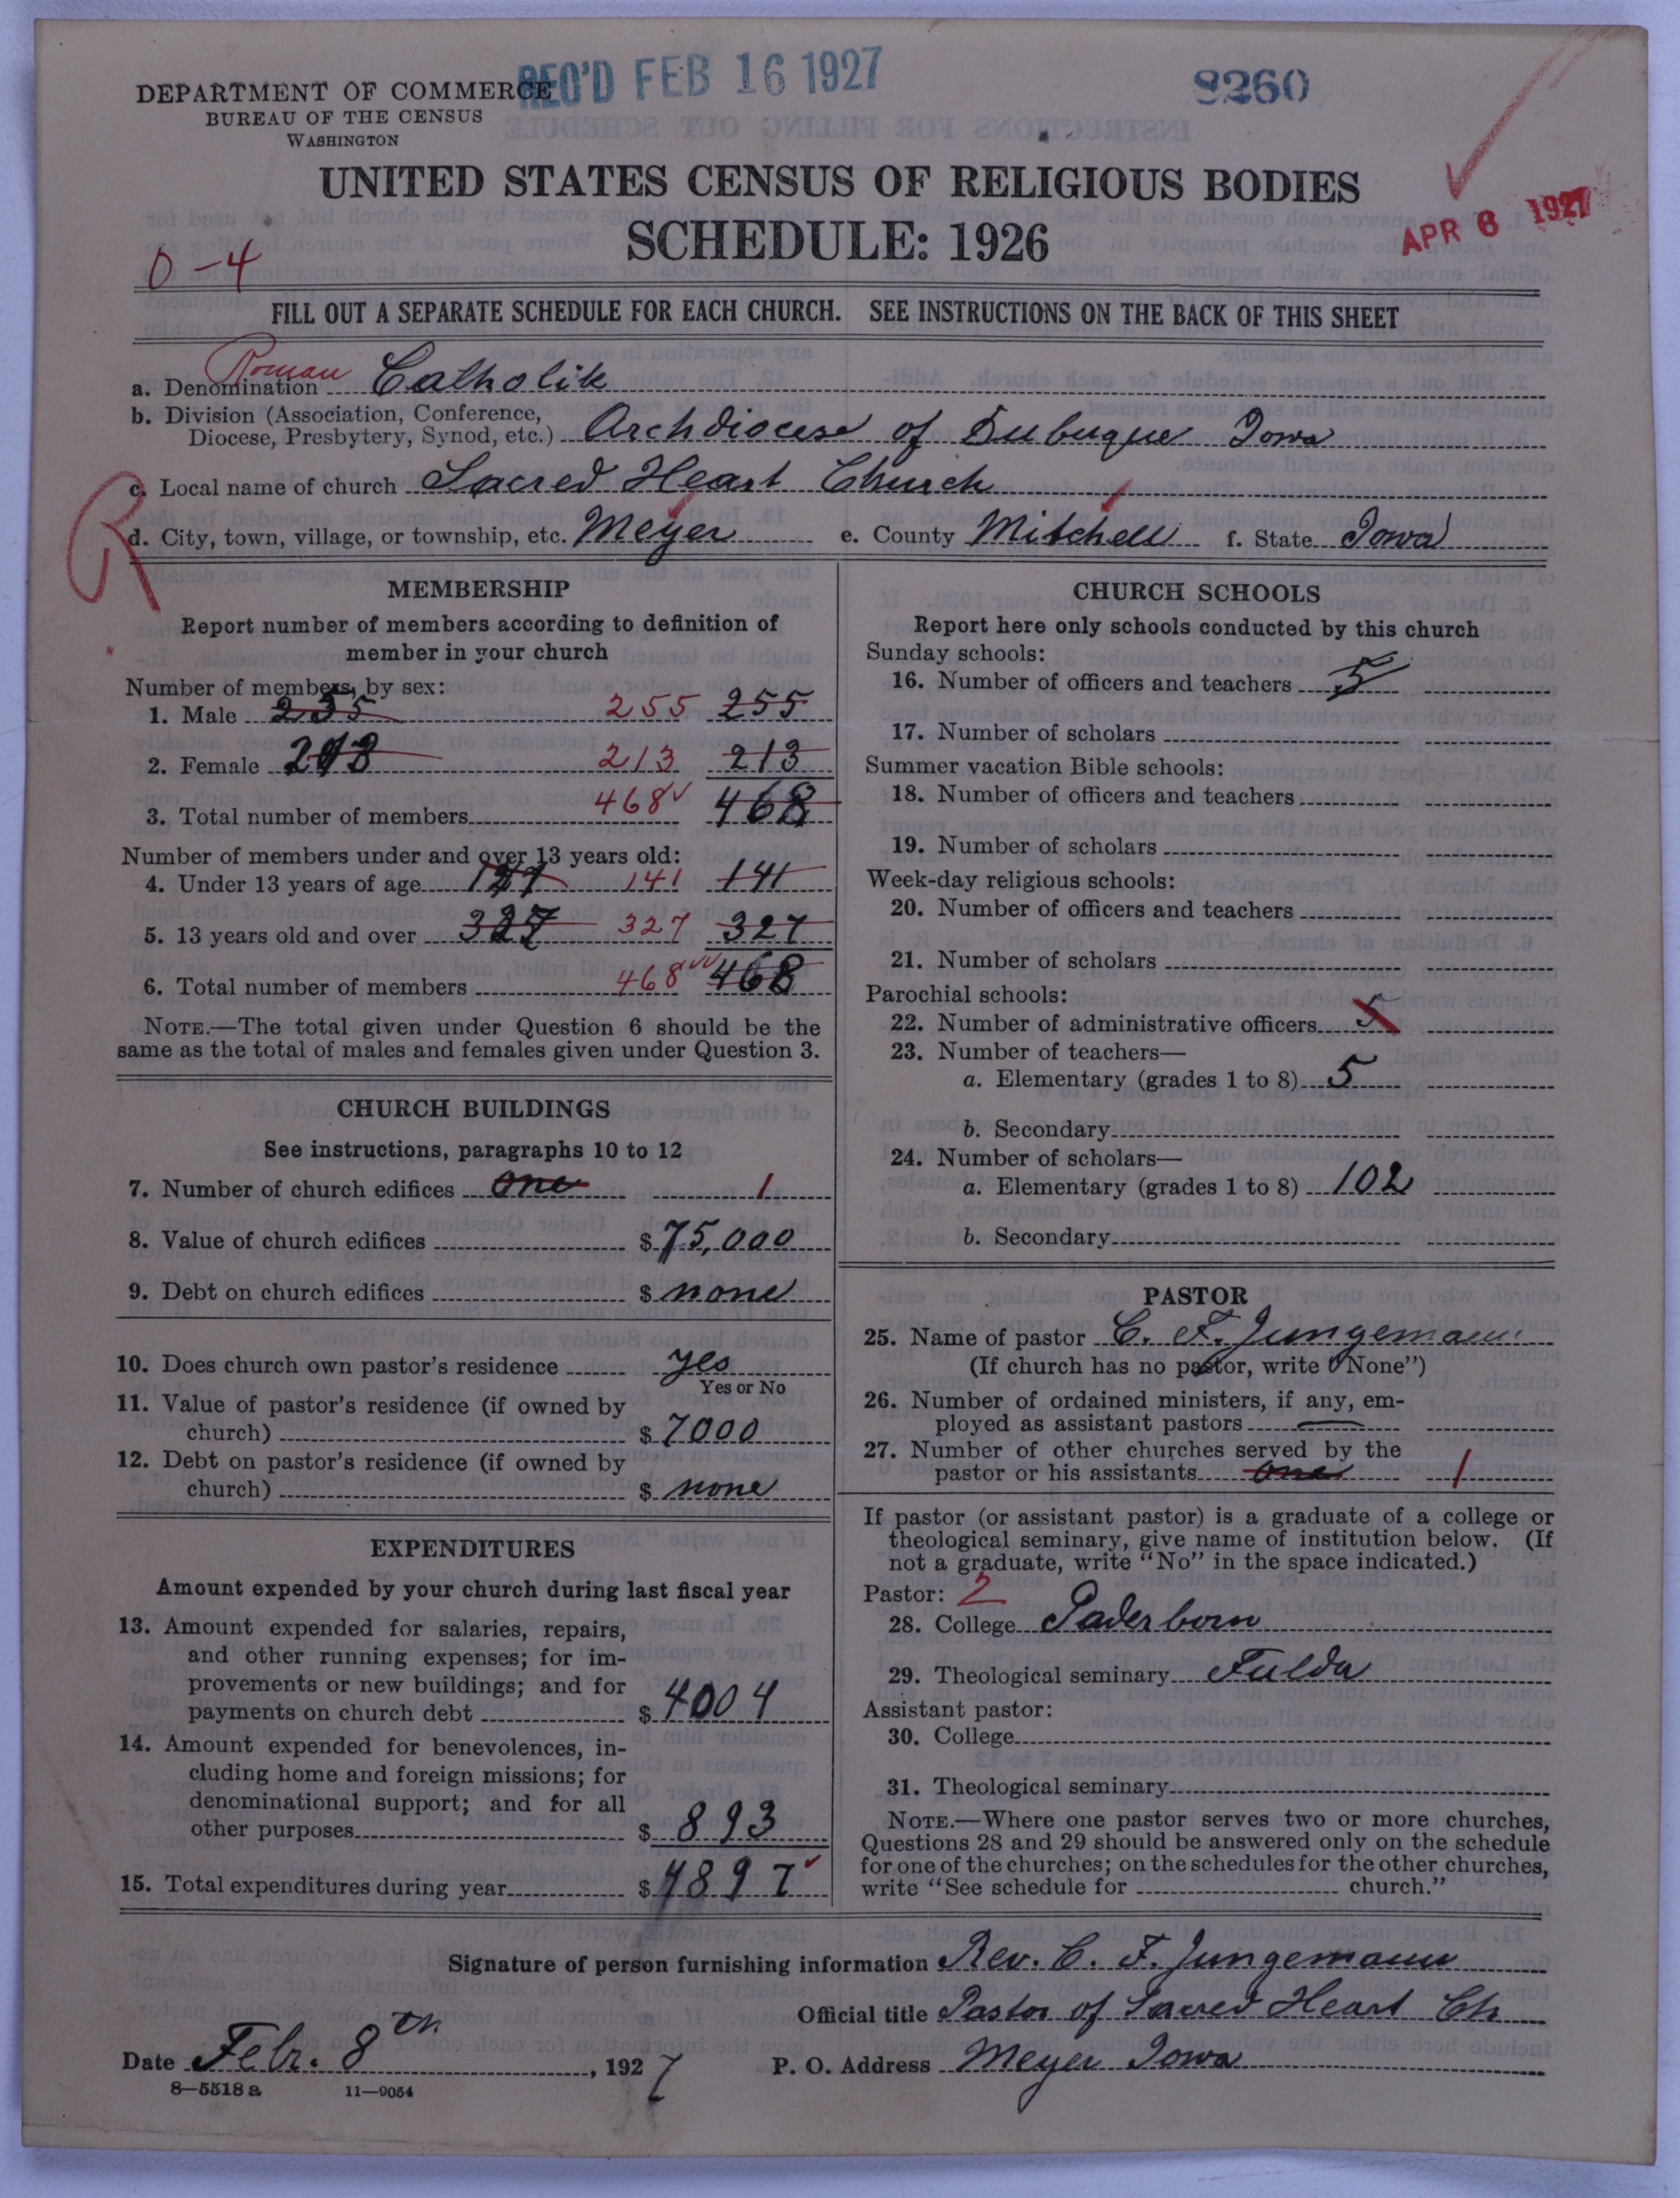 DEPARTMENT OF COMMERCE
BUREAU OF THE CENSUS
WASHINGTON
REC'D FEB 16 1927
8260
UNITED STATES CENSUS OF RELIGIOUS BODIES
SCHEDULE: 1926
APR 6 1927
0-4
FILL OUT A SEPARATE SCHEDULE FOR EACH CHURCH. SEE INSTRUCTIONS ON THE BACK OF THIS SHEET
a. Denomination Roman Catholik
b. Division (Association, Conference,
Diocese, Presbytery, Synod, etc.) Archdiocese of Dubuque Iowa
c. Local name of church Sacred Heart Church
d. City, town, village, or township, etc. Meyer e. County Mitchell f. State Iowa
R
MEMBERSHIP
Report number of members according to definition of
member in your church
Number of members, by sex:
1. Male 235 255 255
2. Female 213 213
3. Total number of members 468 468
Number of members under and over 13 years old:
4. Under 13 years of age 141 141
5. 13 years old and over 327 327 327
6. Total number of members 468 468
NOTE.—The total given under Question 6 should be the
same as the total of males and females given under Question 3.
CHURCH BUILDINGS
See instructions, paragraphs 10 to 12
7. Number of church edifices one 1
8. Value of church edifices $ 75,000
9. Debt on church edifices $ none
10. Does church own pastor's residence yes
Yes or No
11. Value of pastor's residence (if owned by
church) $ 7000
12. Debt on pastor's residence (if owned by
church) $ none
EXPENDITURES
Amount expended by your church during last fiscal year
13. Amount expended for salaries, repairs,
and other running expenses; for im-
provements or new buildings; and for
payments on church debt $ 4004
14. Amount expended for benevolences, in-
cluding home and foreign missions; for
denominational support; and for all
other purposes $ 893
15. Total expenditures during year $ 4897
CHURCH SCHOOLS
Report here only schools conducted by this church
Sunday schools:
16. Number of officers and teachers 5
17. Number of scholars
Summer vacation Bible schools:
18. Number of officers and teachers
19. Number of scholars
Week-day religious schools:
20. Number of officers and teachers
21. Number of scholars
Parochial schools:
22. Number of administrative officers 5
23. Number of teachers—
a. Elementary (grades 1 to 8) 5
b. Secondary
24. Number of scholars—
a. Elementary (grades 1 to 8) 102
b. Secondary
PASTOR
25. Name of pastor C. F. Jungemann
(If church has no pastor, write "None")
26. Number of ordained ministers, if any, em-
ployed as assistant pastors
27. Number of other churches served by the
pastor or his assistants one 1
If pastor (or assistant pastor) is a graduate of a college or
theological seminary, give name of institution below. (If
not a graduate, write "No" in the space indicated.)
Pastor: 2
28. College Paderborn
29. Theological seminary Fulda
Assistant pastor:
30. College
31. Theological seminary
NOTE.—Where one pastor serves two or more churches,
Questions 28 and 29 should be answered only on the schedule
for one of the churches; on the schedules for the other churches,
write "See schedule for church."
Signature of person furnishing information Rev. C. F. Jungemann
Official title Pastor of Sacred Heart Ch
Date Febr. 8th, 1927 P. O. Address Meyer Iowa
8—5518 a 11—9054